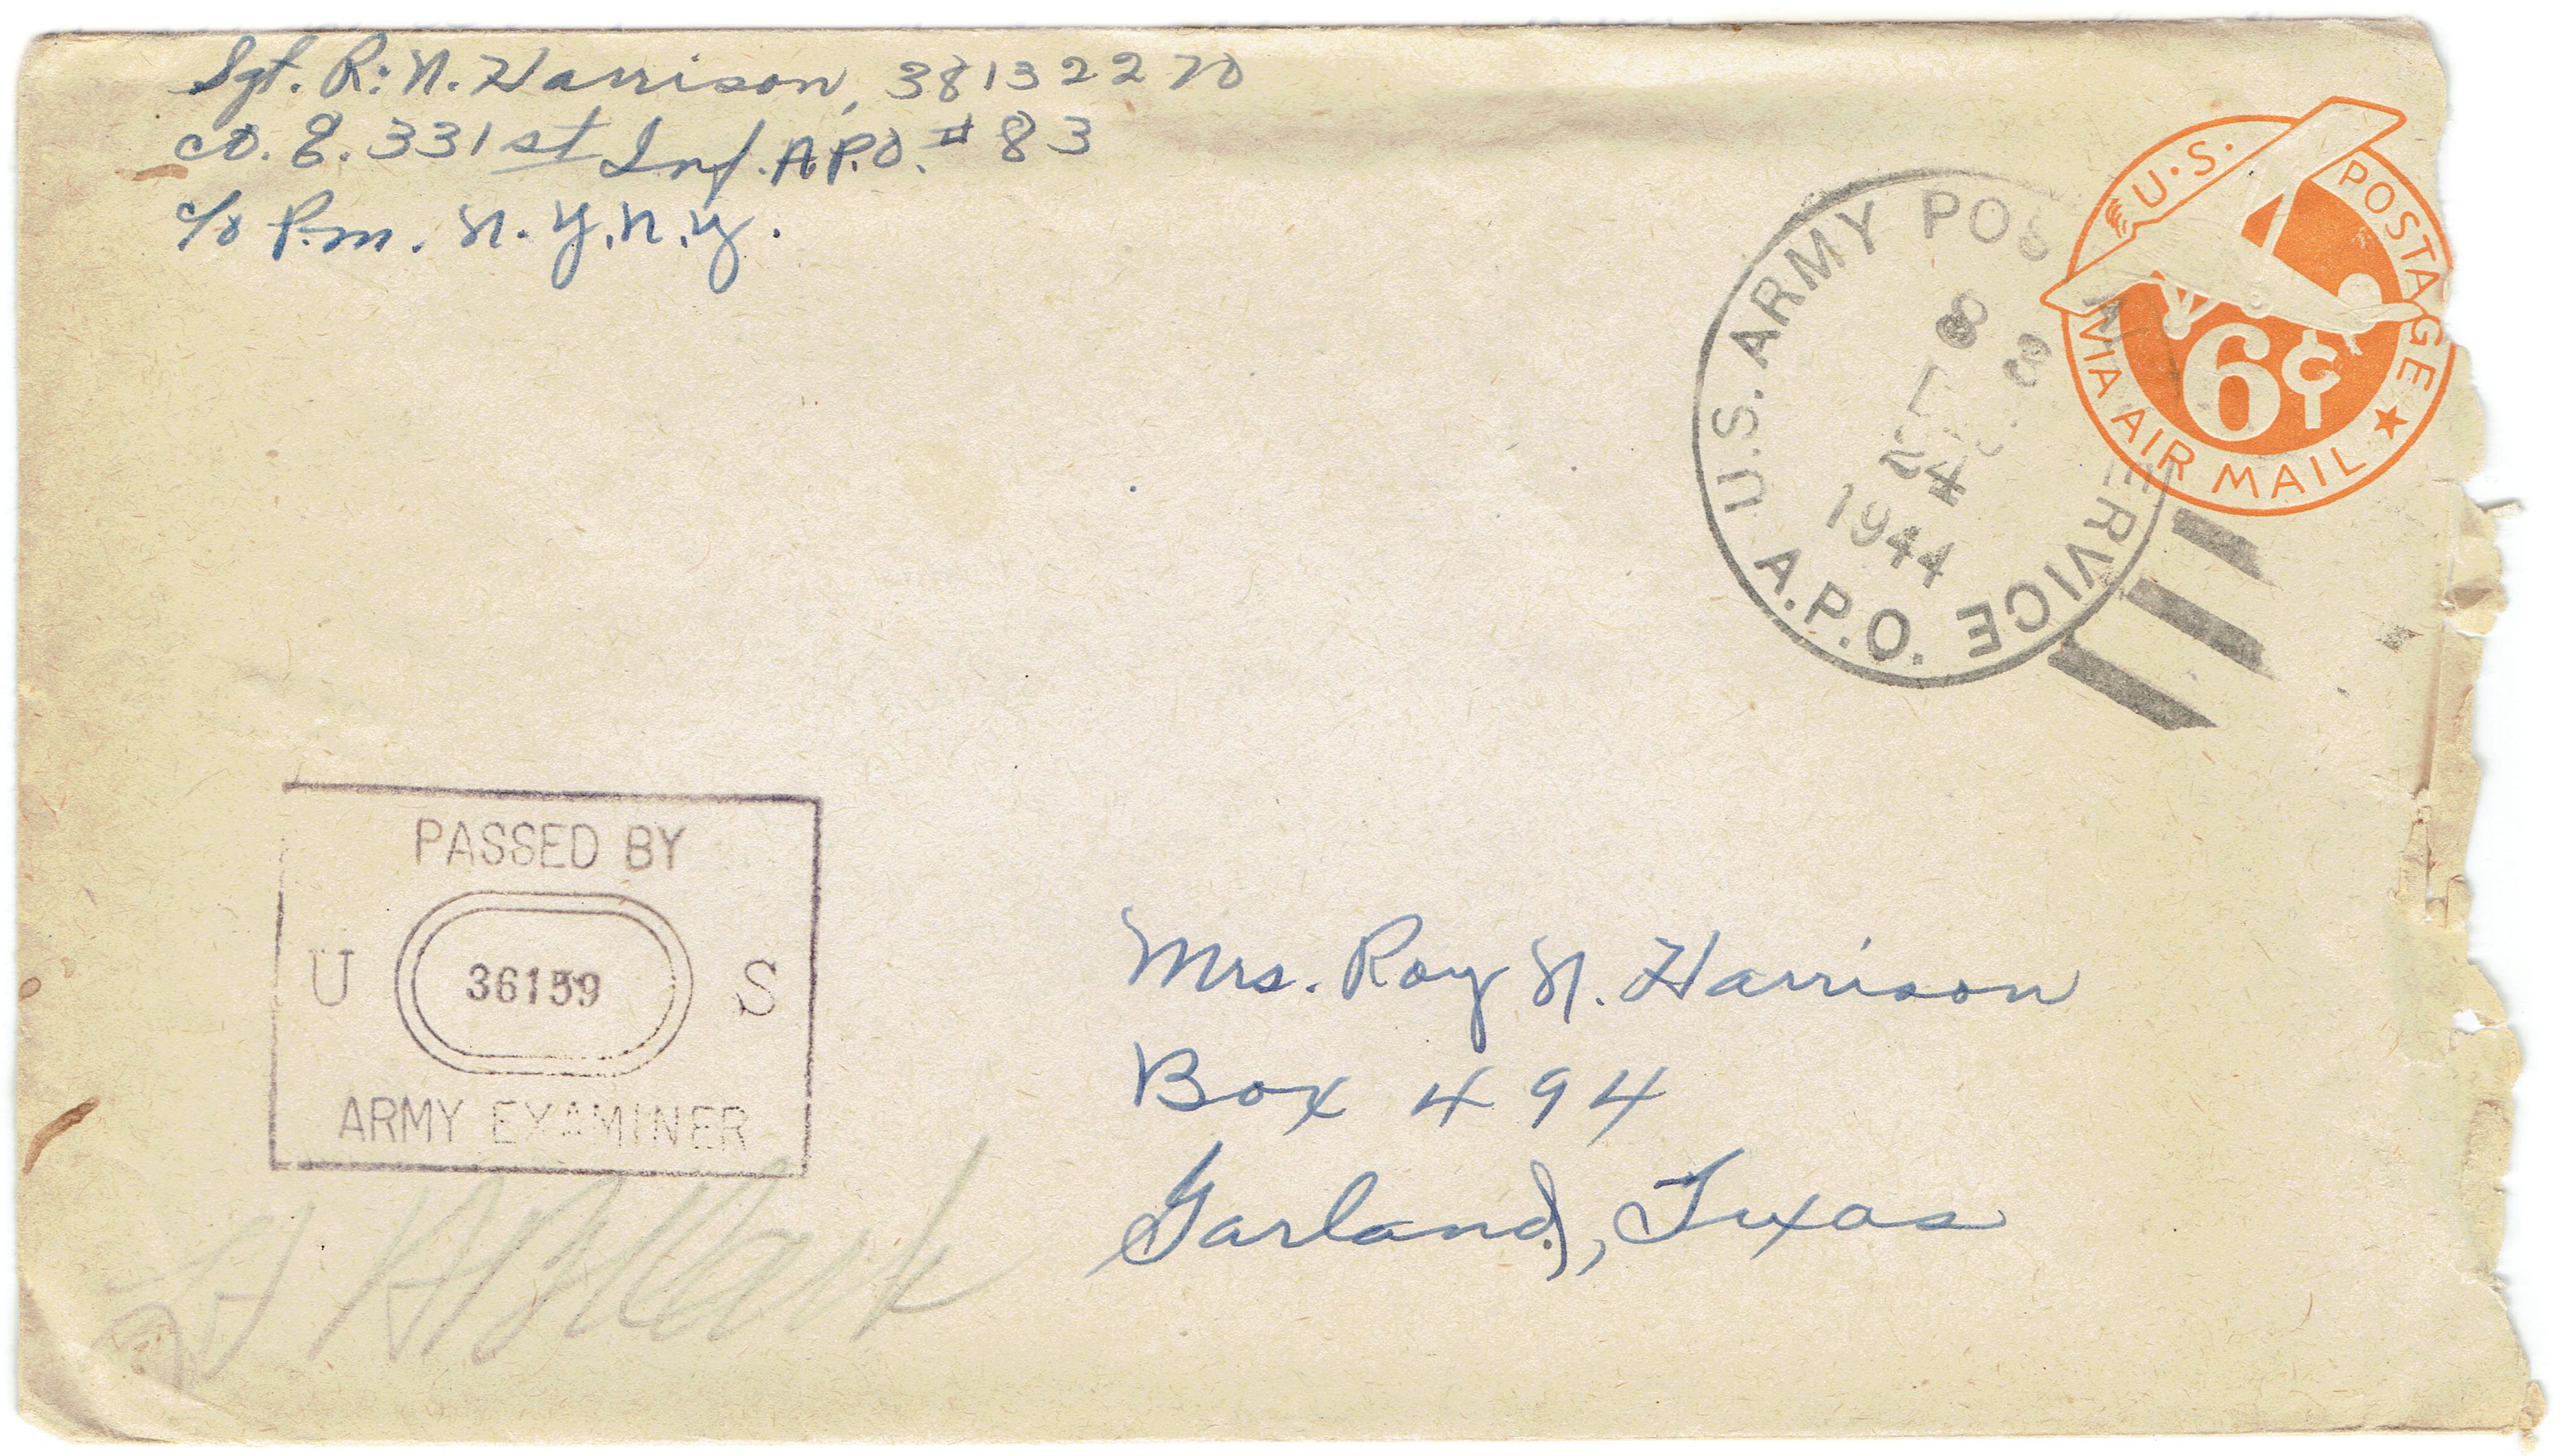 Sgt. R. N. Harrison, 38132270
co. E. 331st Inf. A.P.O. # 83
c/o P.m. N.Y., N.Y.
U.S. POSTAGE
VIA AIR MAIL
6¢
U.S. ARMY POSTAL SERVICE
A.P.O.
8
24
1944
PASSED BY
U 36159 S
ARMY EXAMINER
Mrs. Roy N. Harrison
Box 494
Garland, Texas